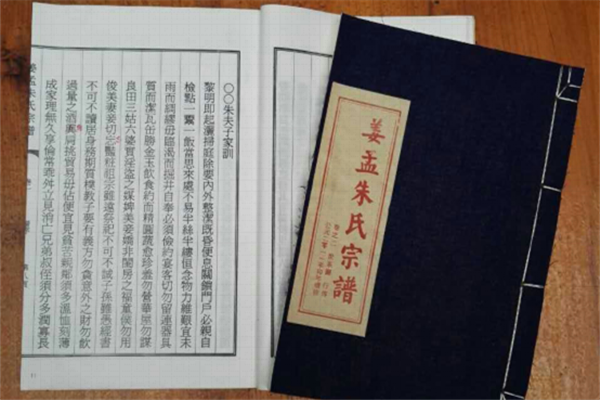 ○○朱夫子家訓
黎明即起灑掃庭除要內外整潔既昏便息關鎖門戶必親自
檢點一粥一飯當思來處不易半絲半縷恒念物力維艱宜未
雨而綢繆毋臨渴而掘井自奉必須儉約宴客切勿留連器具
質而潔瓦缶勝金玉飲食約而精園蔬愈珍饈勿營華屋勿謀
良田三姑六婆實淫盜之媒婢美妾嬌非閨房之福童僕勿用
俊美妻妾切忌艷粧祖宗雖遠祭祀不可不誠子孫雖愚經書
不可不讀居身務期質樸教子要有義方勿貪意外之財勿飲
過量之酒與肩挑貿易毋佔便宜見貧苦親鄰須多溫恤刻薄
成家理無久享倫常乖舛立見消亡兄弟叔侄須分多潤寡長
姜孟朱氏宗譜
姜孟朱氏宗譜
卷之二